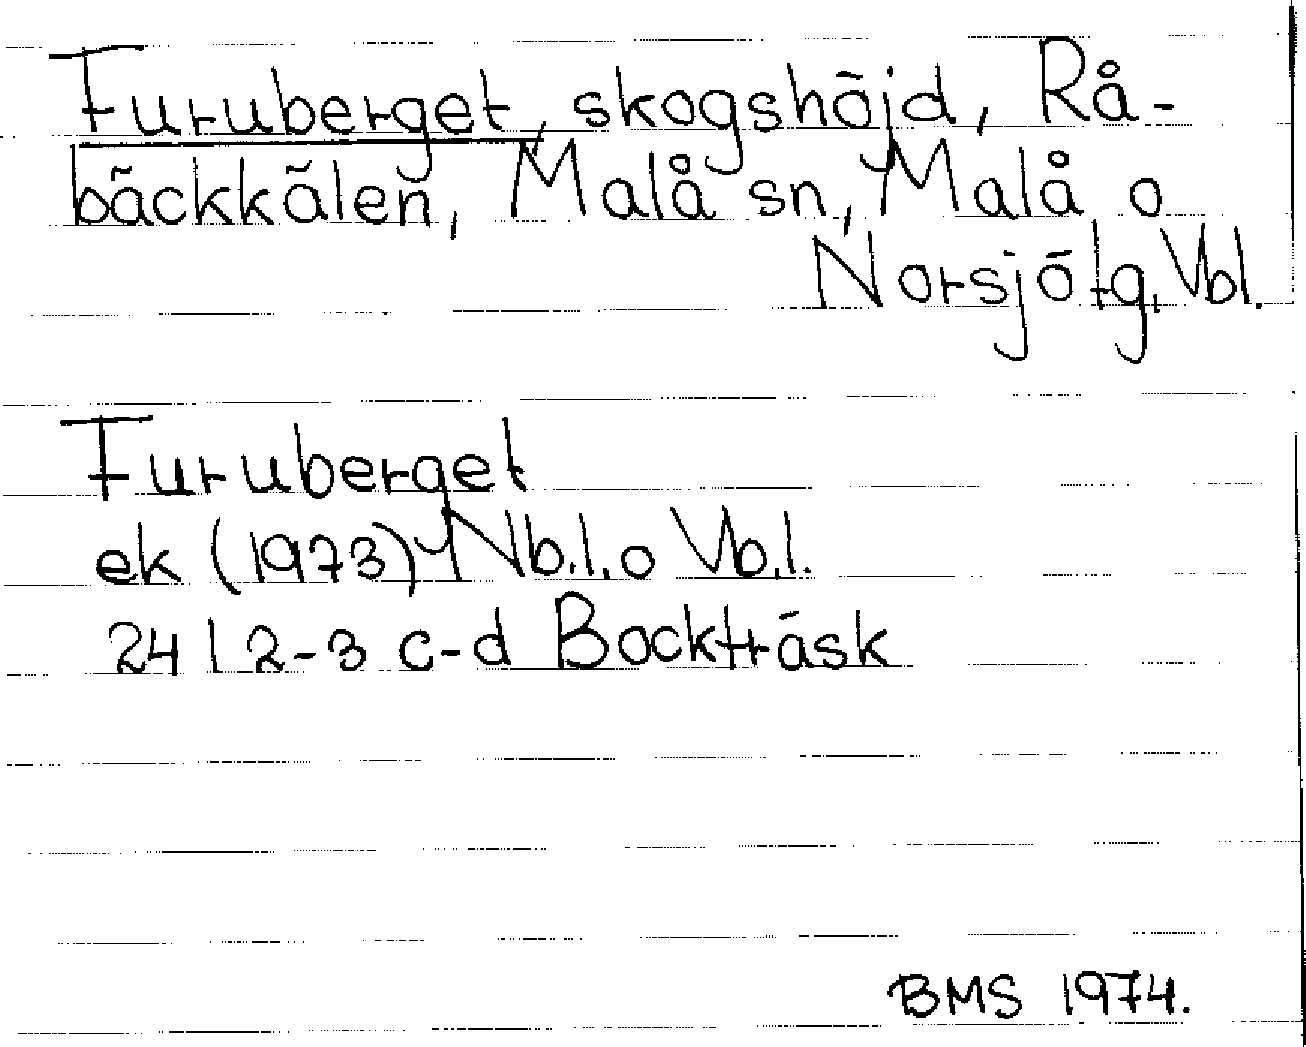 Furuberget, skogshöjd, Rå-
bäckkälen, Malå sn, Malå o
Norsjö tg, Vbl.
Furuberget
ek (1973) Y Nb.l. o Vb.l.
24 I 2-3 c-d Bockträsk
BMS 1974.